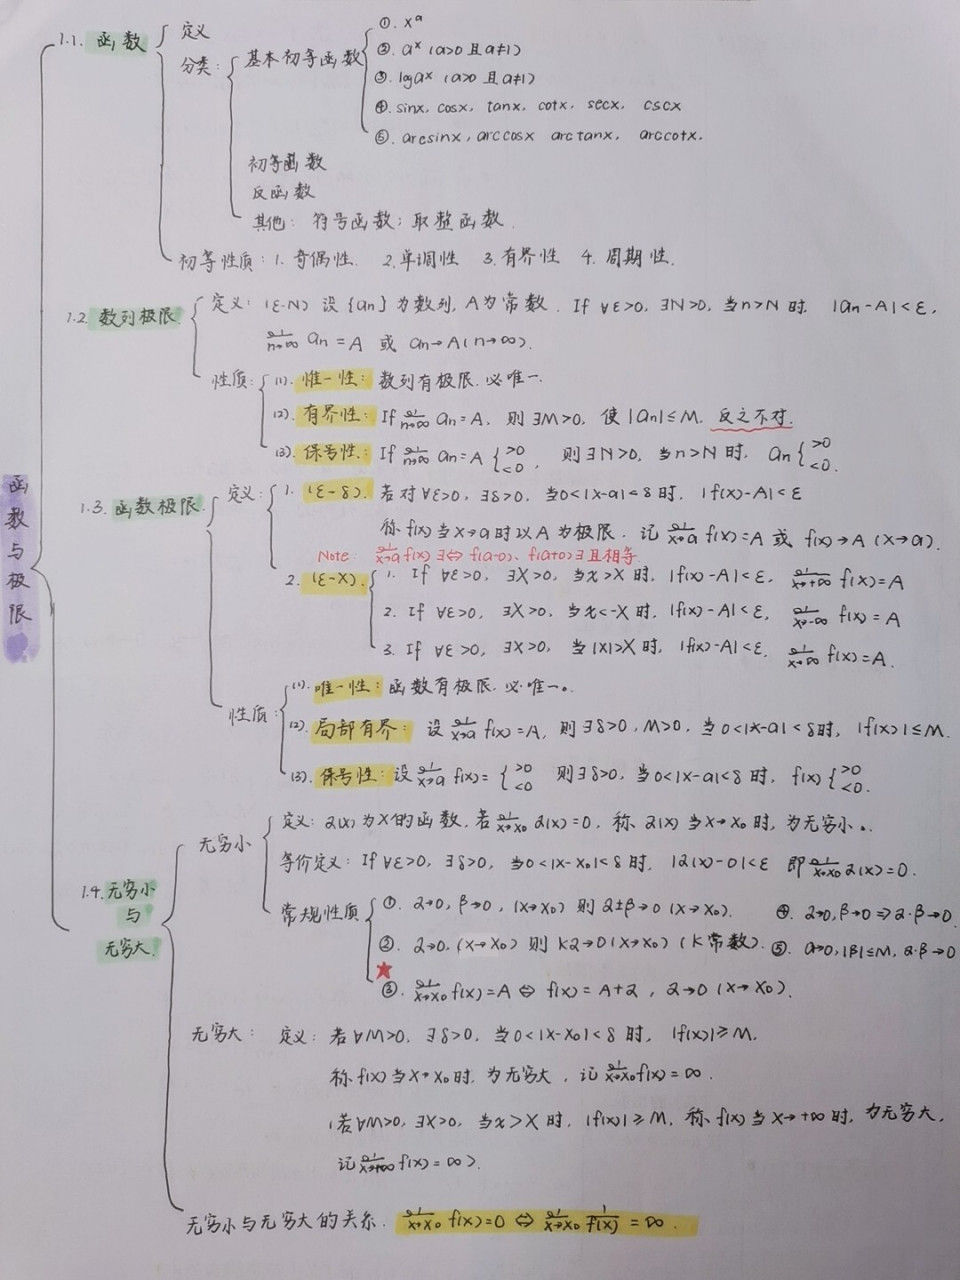 函数与极限
1.1. 函数
定义
分类：
基本初等函数
①. xᵃ
②. aˣ (a>0 且 a≠1)
③. logaˣ (a>0 且 a≠1)
④. sinx, cosx, tanx, cotx, secx, cscx
⑤. arcsinx, arccosx arctanx, arccotx.
初等函数
反函数
其他: 符号函数; 取整函数.
初等性质: 1. 奇偶性. 2. 单调性 3. 有界性 4. 周期性.
1.2 数列极限.
定义: (ε-N) 设 {an} 为数列, A为常数. If ∀ε>0, ∃N>0, 当n>N 时, |an-A|<ε,
lim n→∞ an = A 或 an→A (n→∞).
性质:
(1). 惟一性: 数列有极限. 必唯一.
(2). 有界性: If lim n→∞ an=A, 则 ∃M>0, 使 |an|≤M. 反之不对.
(3). 保号性: If lim n→∞ an=A {>0 <0, 则∃N>0, 当n>N 时, an {>0 <0.
1.3. 函数极限.
定义:
1. (ε-δ). 若对∀ε>0, ∃δ>0, 当0<|x-a|<δ时, |f(x)-A|<ε
称f(x)当x→a时以A为极限. 记 lim x→a f(x)=A 或 f(x)→A (x→a).
Note: lim x→a f(x)∃⇔f(a-0)、f(a+0)∃且相等.
2. (ε-X).
1. If ∀ε>0, ∃X>0, 当x>X时, |f(x)-A|<ε, lim x→+∞ f(x)=A
2. If ∀ε>0, ∃X>0, 当x<-X时, |f(x)-A|<ε, lim x→-∞ f(x)=A
3. If ∀ε>0, ∃X>0, 当|x|>X时, |f(x)-A|<ε, lim x→∞ f(x)=A.
性质:
(1). 唯一性: 函数有极限. 必唯一.
(2). 局部有界: 设 lim x→a f(x)=A, 则∃δ>0, M>0, 当0<|x-a|<δ时, |f(x)|≤M.
(3). 保号性: 设 lim x→a f(x)= {>0 <0 则∃δ>0, 当0<|x-a|<δ时, f(x) {>0 <0.
1.4. 无穷小与无穷大.
无穷小
定义: α(x)为x的函数, 若 lim x→x₀ α(x)=0, 称α(x)当x→x₀时, 为无穷小.
等价定义: If ∀ε>0, ∃δ>0, 当0<|x-x₀|<δ时, |α(x)-0|<ε 即 lim x→x₀ α(x)=0.
常规性质
①. α→0, β→0, (x→x₀) 则α±β→0 (x→x₀). ④. α→0, β→0 ⇒ α·β→0.
②. α→0, (x→x₀) 则 kα→0 (x→x₀) (k常数). ⑤. α→0, |β|≤M, α·β→0
★
③. lim x→x₀ f(x)=A ⇔ f(x)=A+α, α→0 (x→x₀).
无穷大: 定义: 若∀M>0, ∃δ>0, 当0<|x-x₀|<δ时, |f(x)|≥M.
称f(x)当x→x₀时, 为无穷大, 记 lim x→x₀ f(x)=∞.
(若∀M>0, ∃X>0, 当x>X时, |f(x)|≥M, 称f(x)当x→+∞时, 为无穷大,
记 lim x→+∞ f(x)=∞).
无穷小与无穷大的关系. lim x→x₀ f(x)=0 ⇔ lim x→x₀ 1/f(x) = ∞.